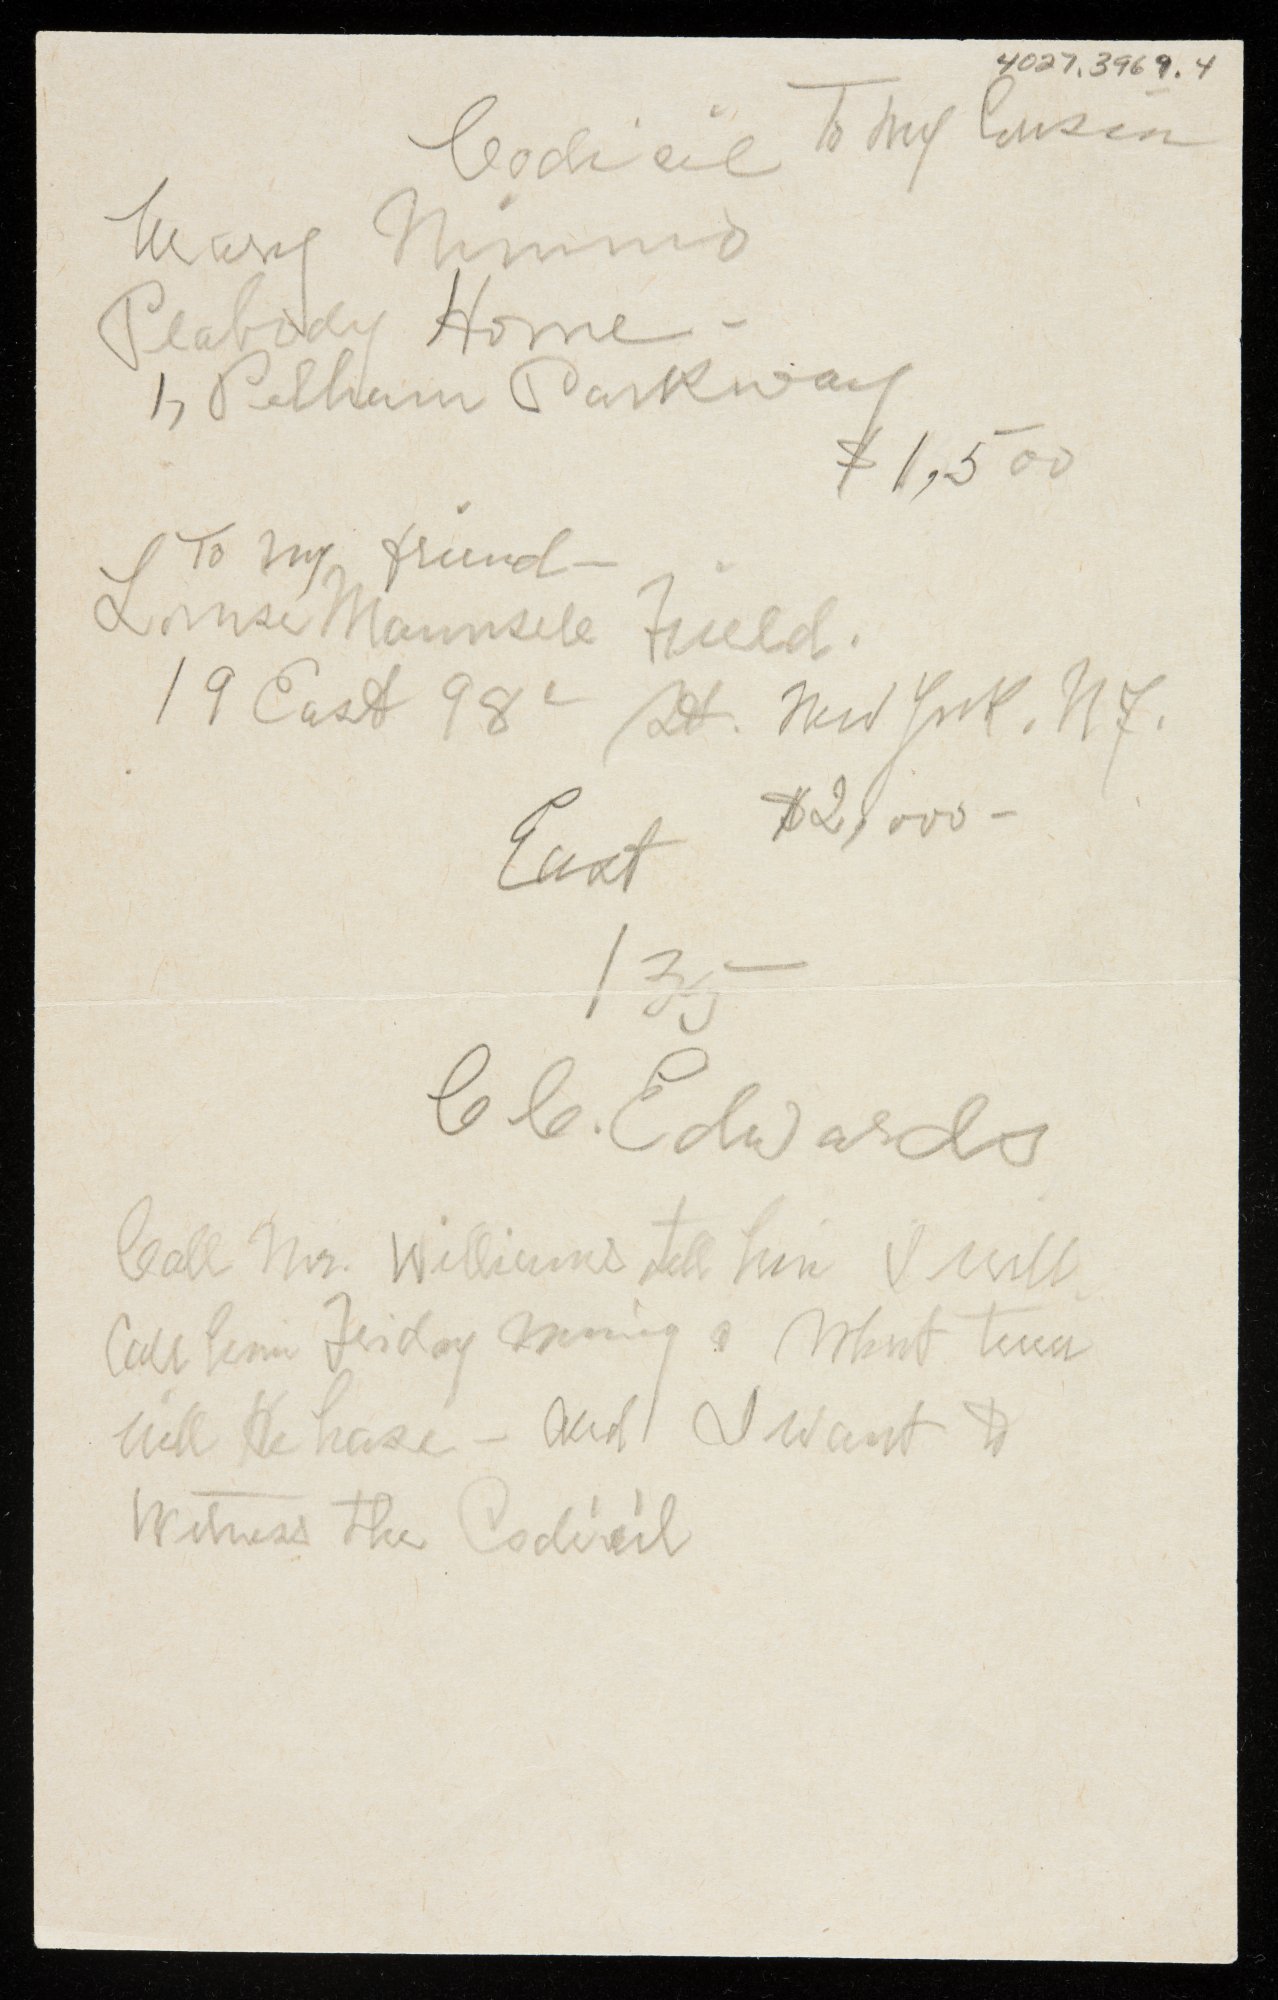 4027.3969.4
Codicil To My Cousin
Mary Nimmo
Peabody Home -
Pelham Parkway
$1,500
To my friend -
Louise Maunsell Field.
19 East 98 St. New York. N.Y.
$2,000 -
East
135
C C. Edwards
Call Mr. Williams tell him I will
Call him Friday morning What time
will he have - And I want to
Witness the Codicil